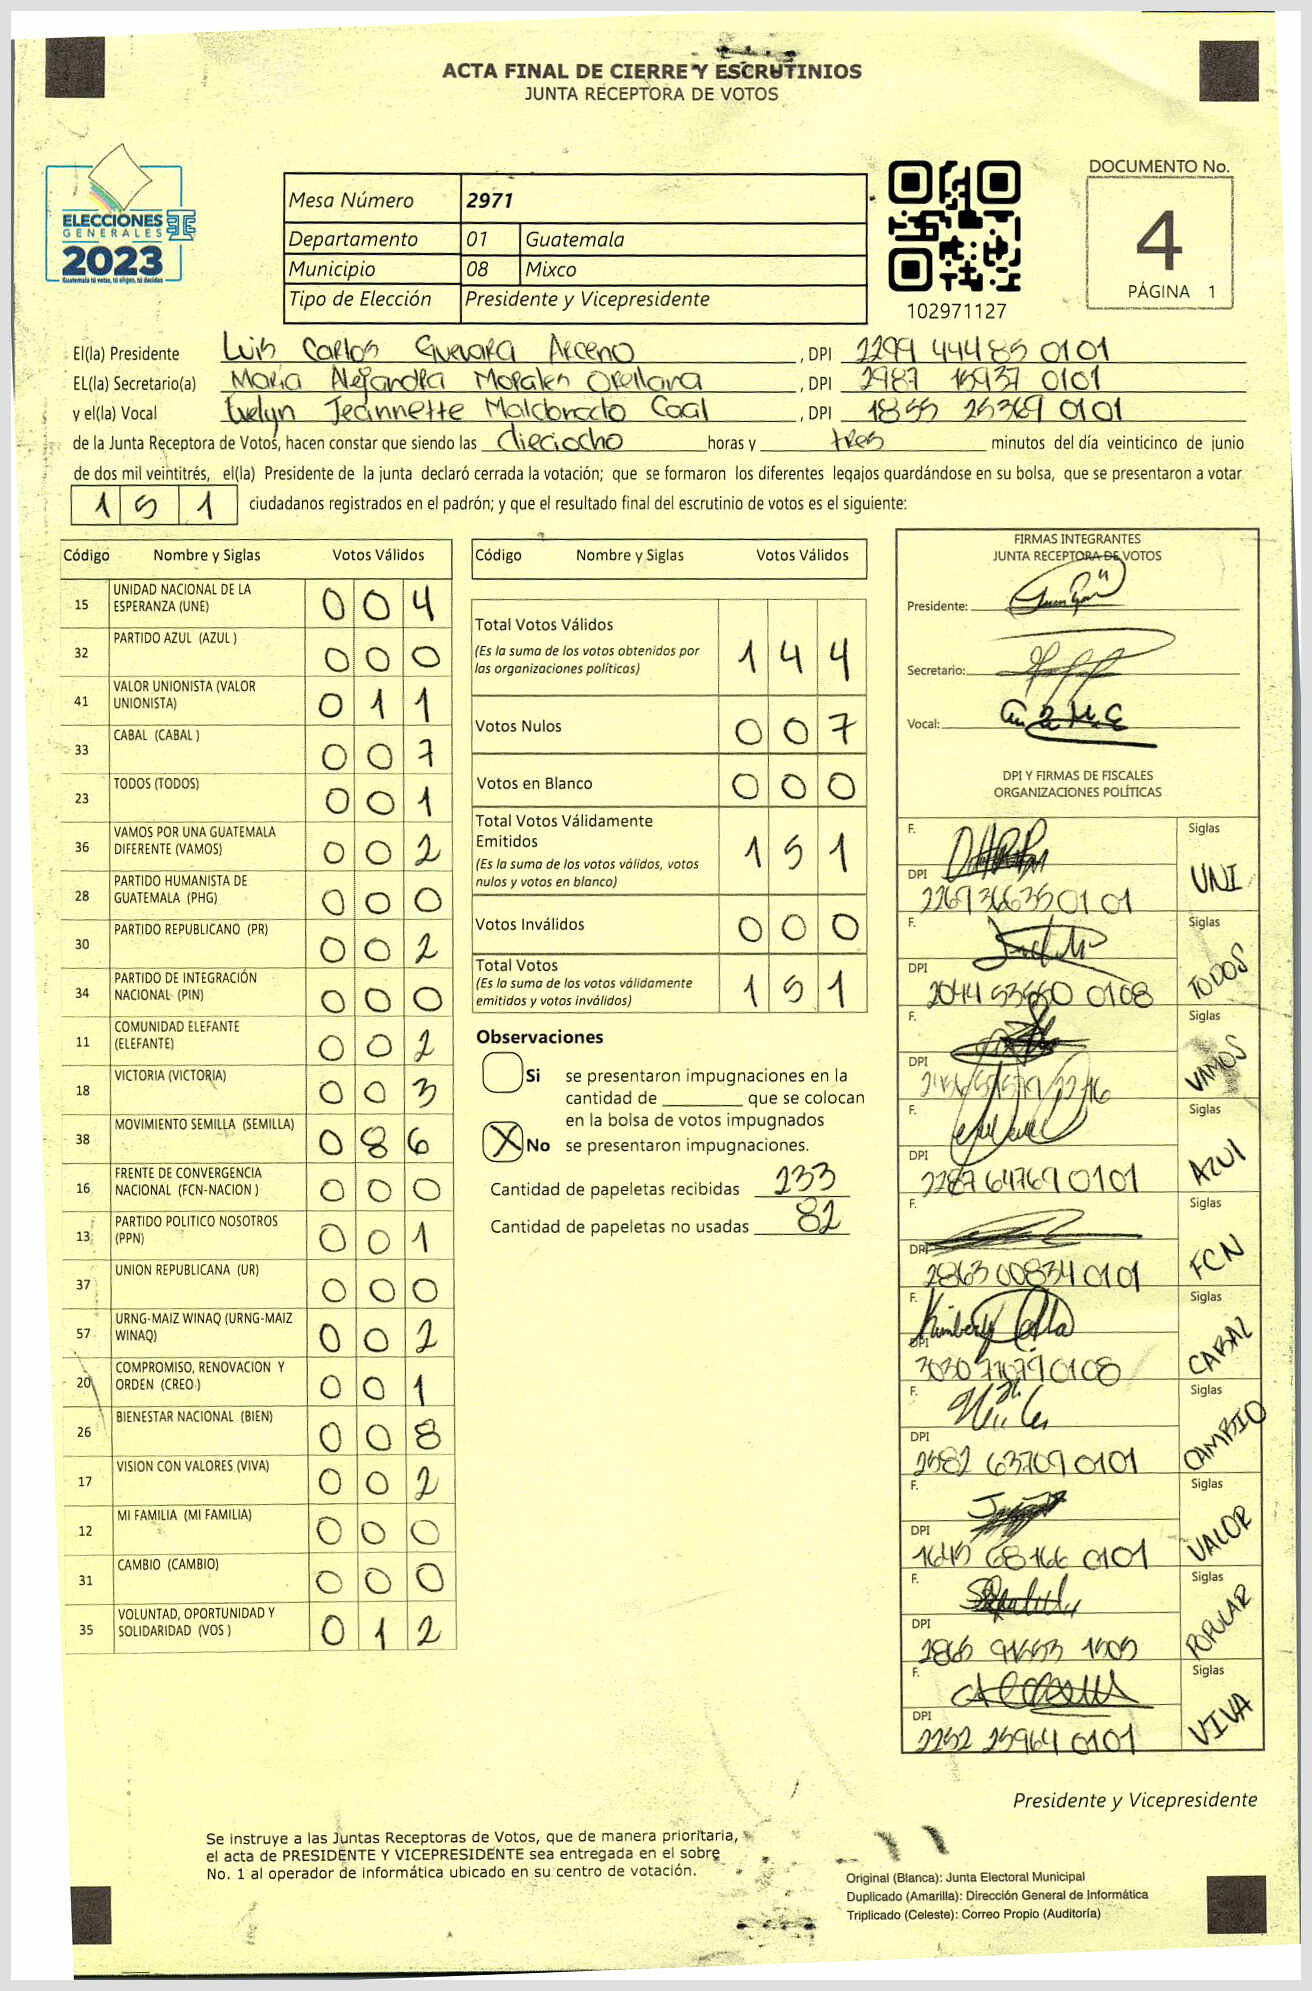 ACTA FINAL DE CIERRE Y ESCRUTINIOS
JUNTA RECEPTORA DE VOTOS
ELECCIONES
GENERALES
2023
Guatemala tú votas, tú eliges, tú decides
Mesa Número 2971
Departamento 01 Guatemala
Municipio 08 Mixco
Tipo de Elección Presidente y Vicepresidente
102971127
DOCUMENTO No.
4
PÁGINA 1
El(la) Presidente Luis Carlos Guevara Arceno, DPI 2299 44485 0101
EL(la) Secretario(a) Maria Alejandra Morales Orellana, DPI 2987 15937 0101
y el(la) Vocal Evelyn Jeannette Maldonado Caal, DPI 1855 25369 0101
de la Junta Receptora de Votos, hacen constar que siendo las dieciocho horas y tres minutos del día veinticinco de junio
de dos mil veintitrés, el(la) Presidente de la junta declaró cerrada la votación; que se formaron los diferentes legajos guardándose en su bolsa, que se presentaron a votar
151 ciudadanos registrados en el padrón; y que el resultado final del escrutinio de votos es el siguiente:
Código Nombre y Siglas Votos Válidos
15 UNIDAD NACIONAL DE LA ESPERANZA (UNE) 004
32 PARTIDO AZUL (AZUL ) 000
41 VALOR UNIONISTA (VALOR UNIONISTA) 011
33 CABAL (CABAL ) 007
23 TODOS (TODOS) 001
36 VAMOS POR UNA GUATEMALA DIFERENTE (VAMOS) 002
28 PARTIDO HUMANISTA DE GUATEMALA (PHG) 000
30 PARTIDO REPUBLICANO (PR) 002
34 PARTIDO DE INTEGRACIÓN NACIONAL (PIN) 000
11 COMUNIDAD ELEFANTE (ELEFANTE) 002
18 VICTORIA (VICTORIA) 003
38 MOVIMIENTO SEMILLA (SEMILLA) 086
16 FRENTE DE CONVERGENCIA NACIONAL (FCN-NACION ) 000
13 PARTIDO POLITICO NOSOTROS (PPN) 001
37 UNION REPUBLICANA (UR) 000
57 URNG-MAIZ WINAQ (URNG-MAIZ WINAQ) 002
20 COMPROMISO, RENOVACION Y ORDEN (CREO ) 001
26 BIENESTAR NACIONAL (BIEN) 008
17 VISION CON VALORES (VIVA) 002
12 MI FAMILIA (MI FAMILIA) 000
31 CAMBIO (CAMBIO) 000
35 VOLUNTAD, OPORTUNIDAD Y SOLIDARIDAD (VOS ) 012
Código Nombre y Siglas Votos Válidos
Total Votos Válidos 144
(Es la suma de los votos obtenidos por
las organizaciones políticas)
Votos Nulos 007
Votos en Blanco 000
Total Votos Válidamente
Emitidos 151
(Es la suma de los votos válidos, votos
nulos y votos en blanco)
Votos Inválidos 000
Total Votos 151
(Es la suma de los votos válidamente
emitidos y votos inválidos)
Observaciones
Si se presentaron impugnaciones en la
cantidad de ________ que se colocan
en la bolsa de votos impugnados
X No se presentaron impugnaciones.
Cantidad de papeletas recibidas 233
Cantidad de papeletas no usadas 82
FIRMAS INTEGRANTES
JUNTA RECEPTORA DE VOTOS
Presidente:
Secretario:
Vocal:
DPI Y FIRMAS DE FISCALES
ORGANIZACIONES POLÍTICAS
F. Siglas
DPI 2269 36635 0101 UNI
F. Siglas
DPI 2044 0108 TODOS
F. Siglas
DPI VAMOS
F. Siglas
DPI 2287 64769 0101 AZUL
F. Siglas
DPI 2863 00834 0101 FCN
F. Kimberly Siglas
DPI 3030 0108 CABAL
F. Siglas
DPI 2582 63709 0101 CAMBIO
F. Siglas
DPI 1645 68166 0101 VALOR
F. Siglas
DPI 2865 1505 POPULAR
F. Siglas
DPI 2252 25964 0101 VIVA
Presidente y Vicepresidente
Se instruye a las Juntas Receptoras de Votos, que de manera prioritaria,
el acta de PRESIDENTE Y VICEPRESIDENTE sea entregada en el sobre
No. 1 al operador de informática ubicado en su centro de votación.
Original (Blanca): Junta Electoral Municipal
Duplicado (Amarilla): Dirección General de Informática
Triplicado (Celeste): Correo Propio (Auditoría)